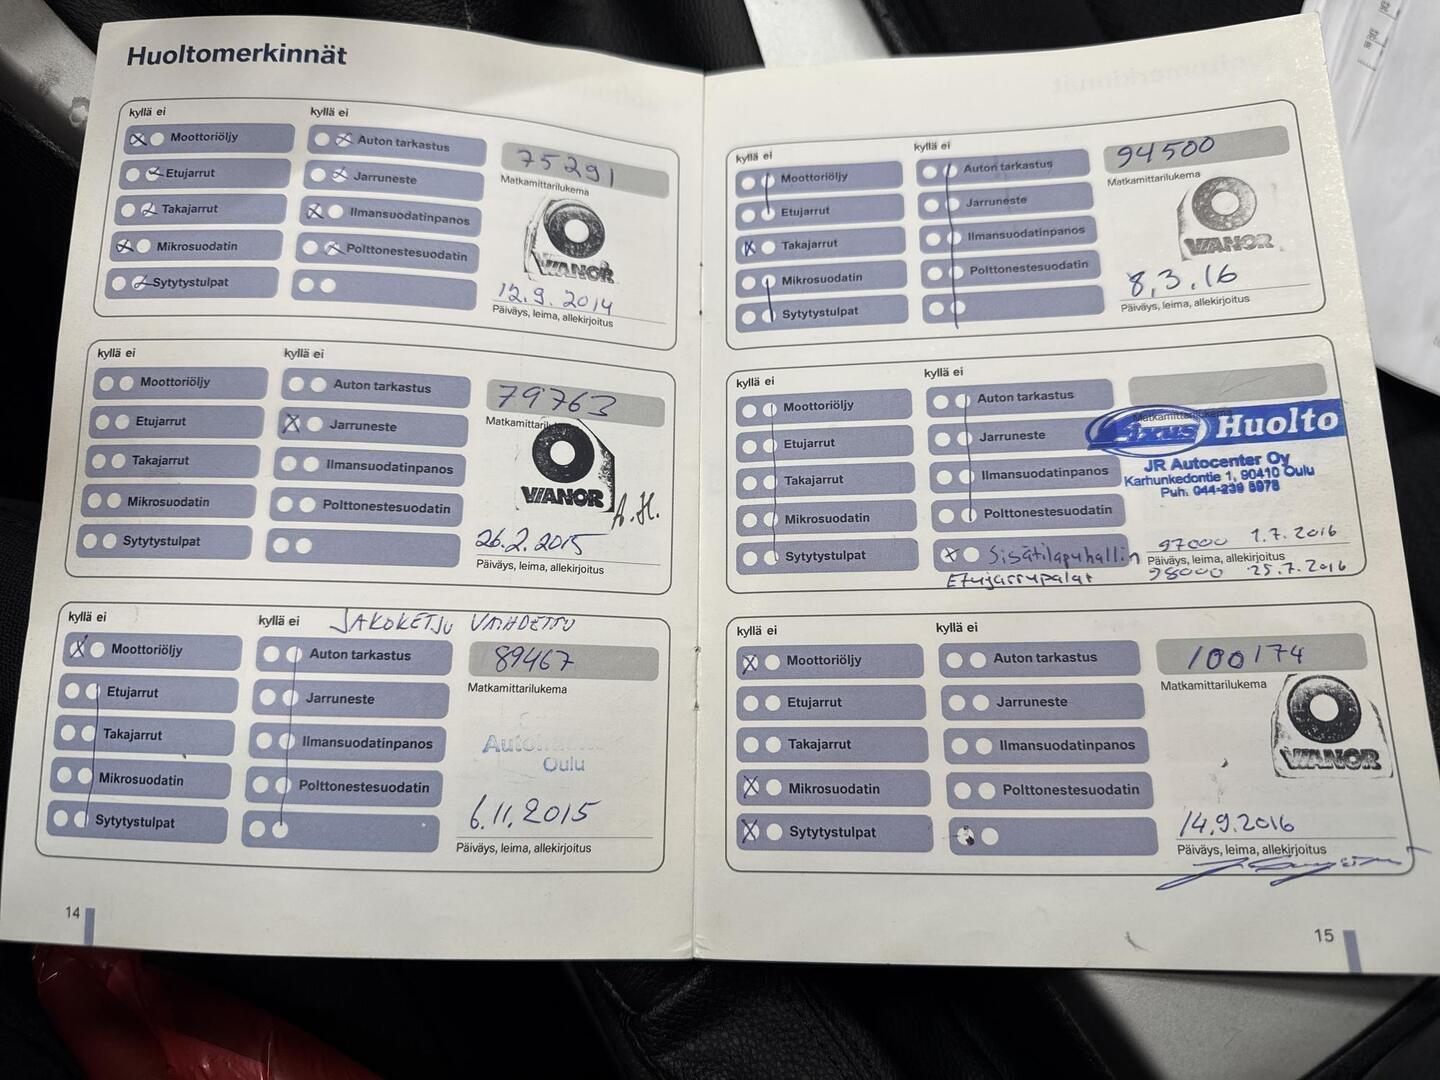 Huoltomerkinnät
kyllä ei
kyllä ei
Moottoriöljy
Auton tarkastus
75291
Etujarrut
Jarruneste
Matkamittarilukema
Takajarrut
Ilmansuodatinpanos
Mikrosuodatin
Polttonestesuodatin
VIANOR
Sytytystulpat
12.9.2014
Päiväys, leima, allekirjoitus
kyllä ei
kyllä ei
Moottoriöljy
Auton tarkastus
79763
Etujarrut
Jarruneste
Takajarrut
Ilmansuodatinpanos
VIANOR
Mikrosuodatin
Polttonestesuodatin
A.H.
Sytytystulpat
26.2.2015
Päiväys, leima, allekirjoitus
kyllä ei
kyllä ei
JAKOKETJU VAIHDETTU
Moottoriöljy
Auton tarkastus
89467
Etujarrut
Jarruneste
Matkamittarilukema
Takajarrut
Ilmansuodatinpanos
Oulu
Mikrosuodatin
Polttonestesuodatin
Sytytystulpat
6.11.2015
Päiväys, leima, allekirjoitus
14
kyllä ei
kyllä ei
Moottoriöljy
Auton tarkastus
94500
Etujarrut
Jarruneste
Matkamittarilukema
Takajarrut
Ilmansuodatinpanos
VIANOR
Mikrosuodatin
Polttonestesuodatin
8.3.16
Sytytystulpat
Päiväys, leima, allekirjoitus
kyllä ei
kyllä ei
Moottoriöljy
Auton tarkastus
Matkamittarilukema
Etujarrut
Jarruneste
Fixus Huolto
Takajarrut
Ilmansuodatinpanos
JR Autocenter Oy
Karhunkedontie 1, 90410 Oulu
Puh. 044-239 5978
Mikrosuodatin
Polttonestesuodatin
Sytytystulpat
Sisätilapuhallin
97000 1.7.2016
Päiväys, leima, allekirjoitus
Etujarrupalat
98000 25.7.2016
kyllä ei
kyllä ei
Moottoriöljy
Auton tarkastus
100174
Etujarrut
Jarruneste
Matkamittarilukema
Takajarrut
Ilmansuodatinpanos
VIANOR
Mikrosuodatin
Polttonestesuodatin
Sytytystulpat
14.9.2016
Päiväys, leima, allekirjoitus
15